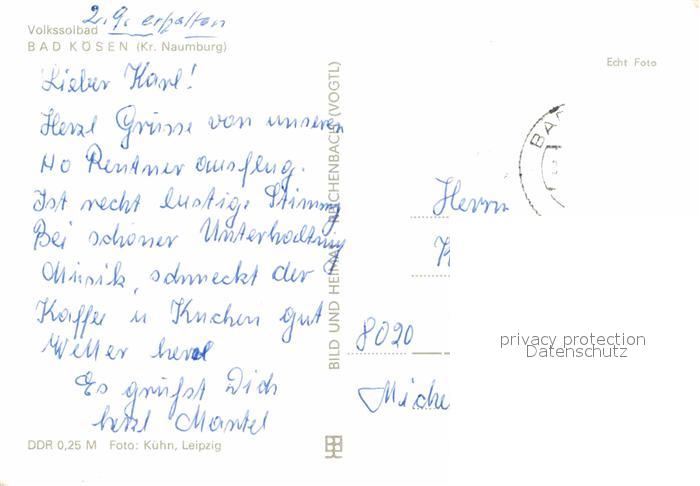 2.9. erhalten
Volkssolbad
BAD KÖSEN (Kr. Naumburg)
Echt Foto
Lieber Karl!
Herzl Grüsse von unseren
Ho Rentner ausflug.
Ist recht lustige Stimmung
Bei schöner Unterhaltung
Musik, schmeckt der
Kaffee u Kuchen gut
Wetter
Es grüsst Dich
herzl
DDR 0,25 M Foto: Kühn, Leipzig
BILD UND HEIMAT REICHENBACH (VOGTL)
BA
Herrn
8020
Miche
privacy protection
Datenschutz